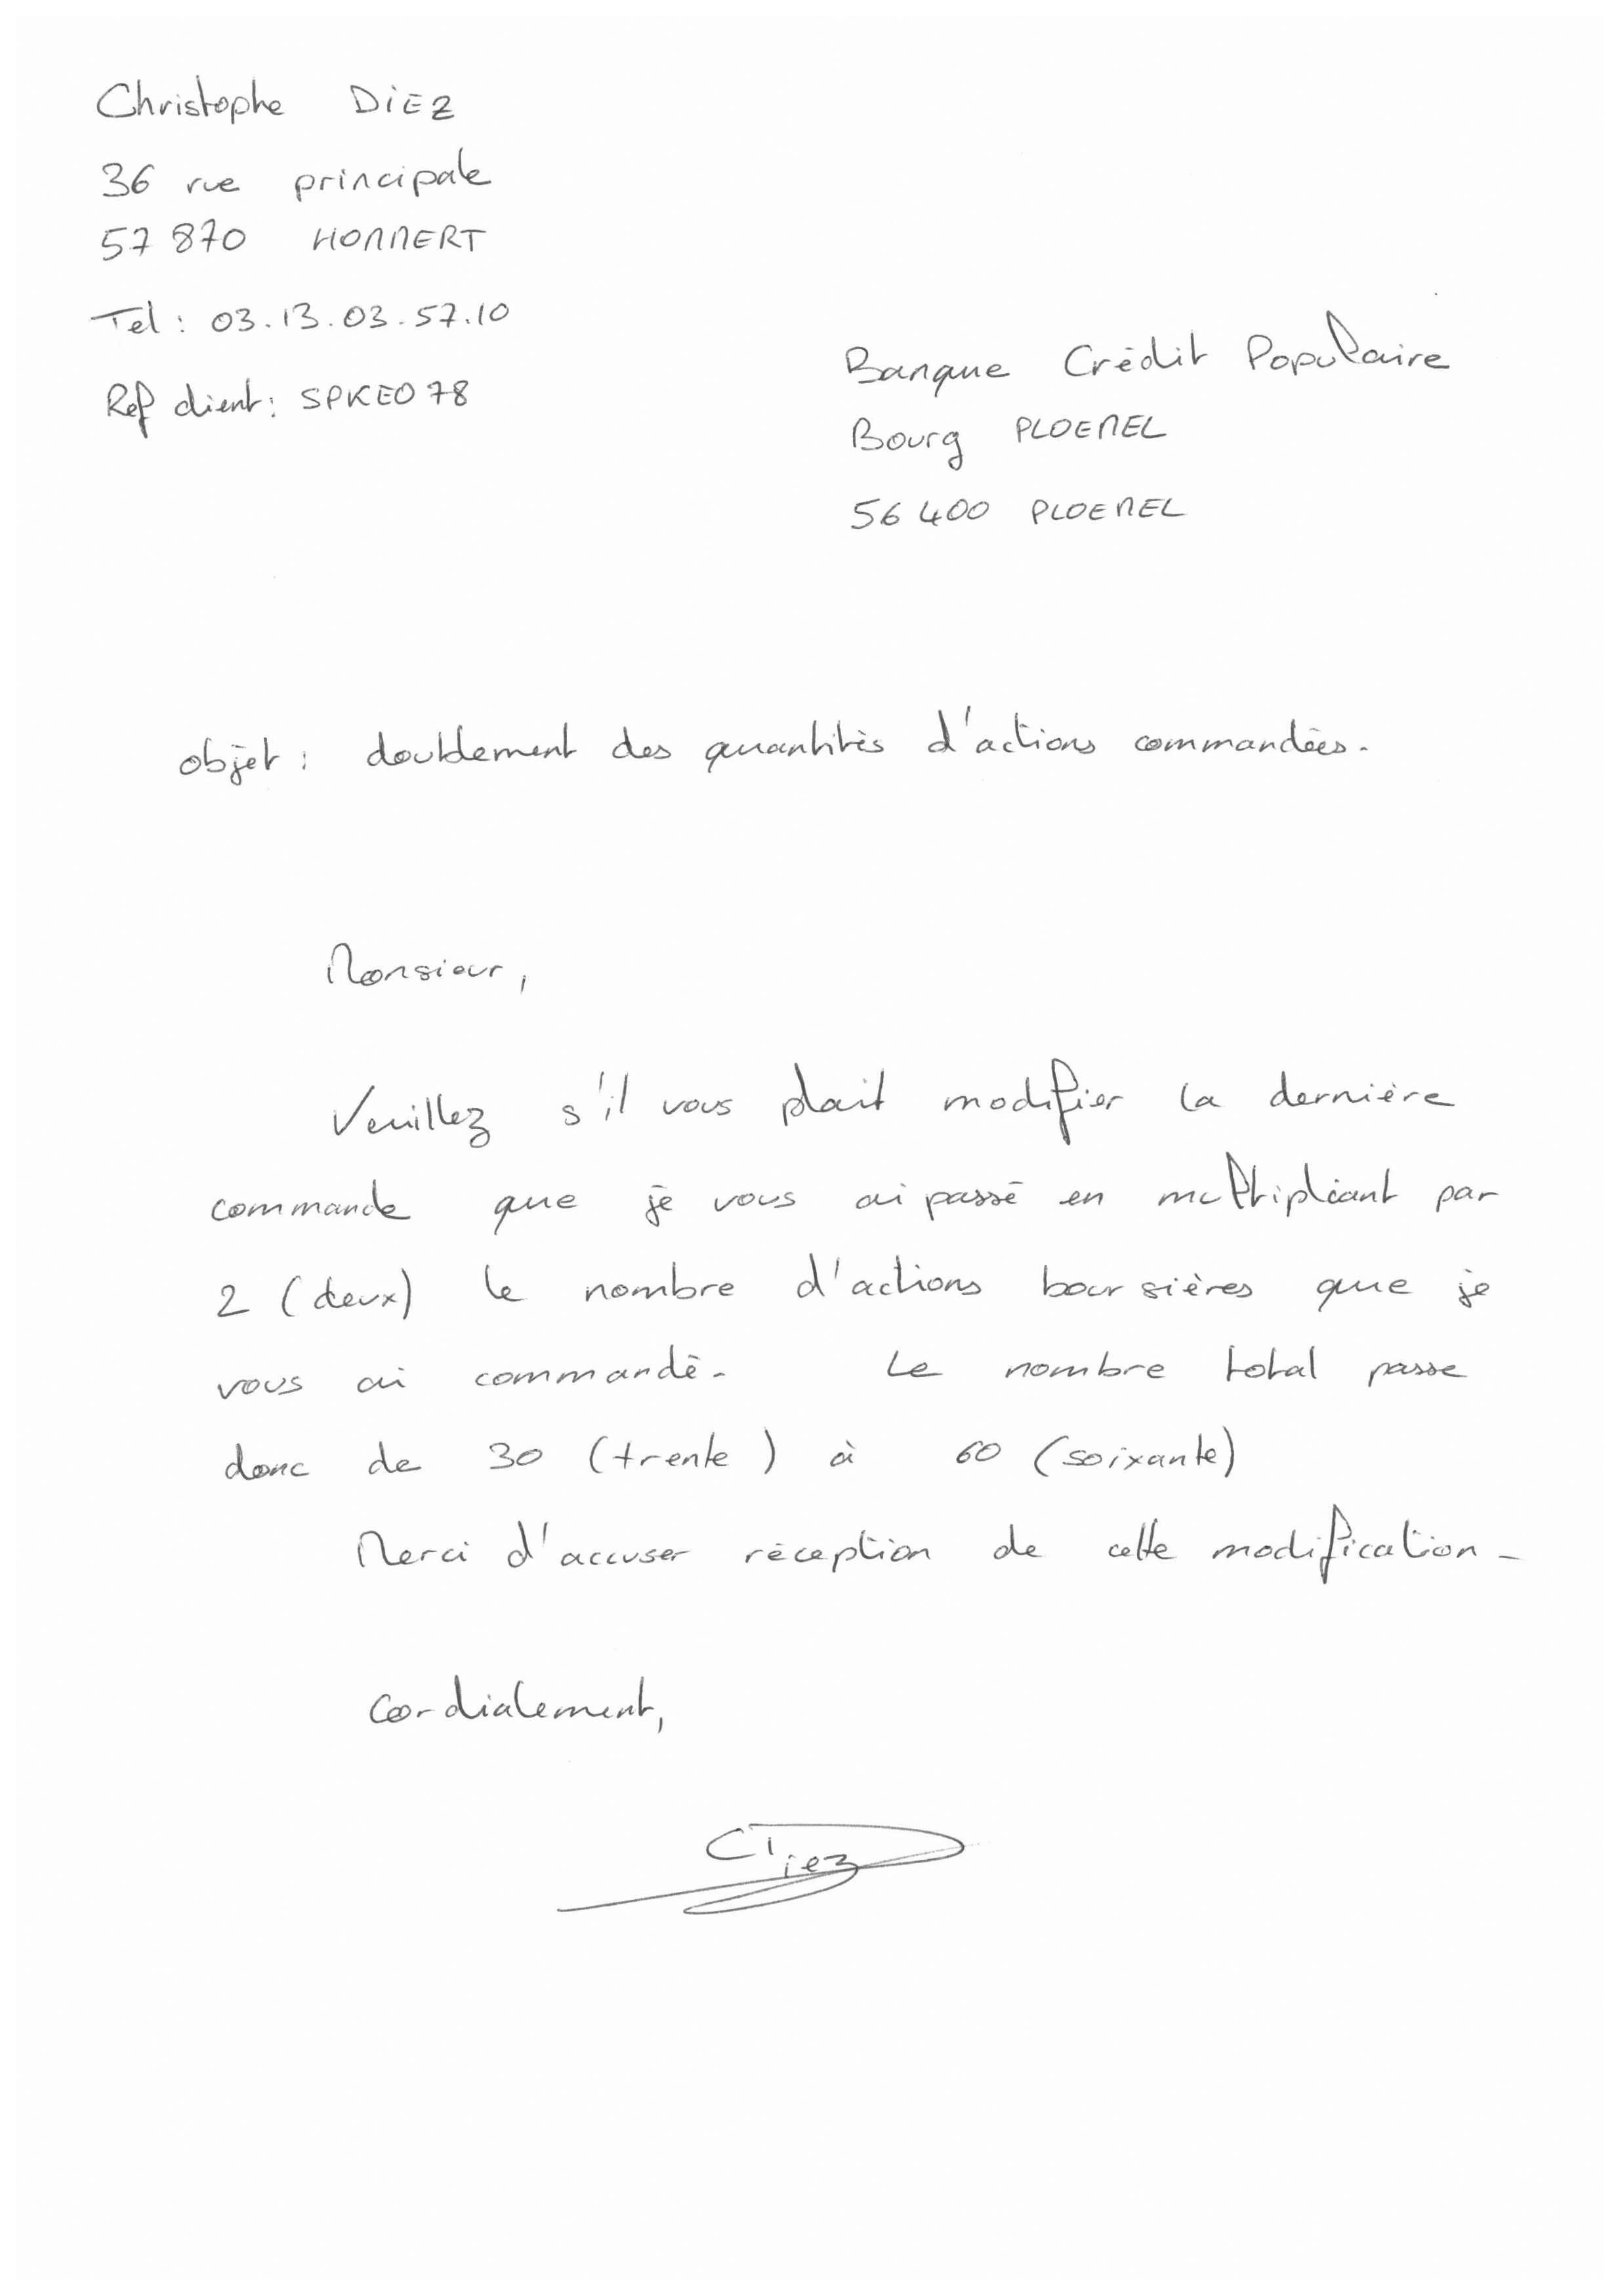 Christophe DIEZ
36 rue principale
57 870 HOMMERT
Tel : 03.13.03.57.10
Ref client : SPKEO78
Banque Crédit Populaire
Bourg PLOEMEL
56 400 PLOEMEL
objet : doublement des quantités d'actions commandées.
Monsieur,
Veuillez s'il vous plait modifier la dernière
commande que je vous ai passé en multipliant par
2 (deux) le nombre d'actions boursières que je
vous ai commandé. Le nombre total passe
donc de 30 (trente) à 60 (soixante)
Merci d'accuser réception de cette modification.
Cordialement,
CDiez